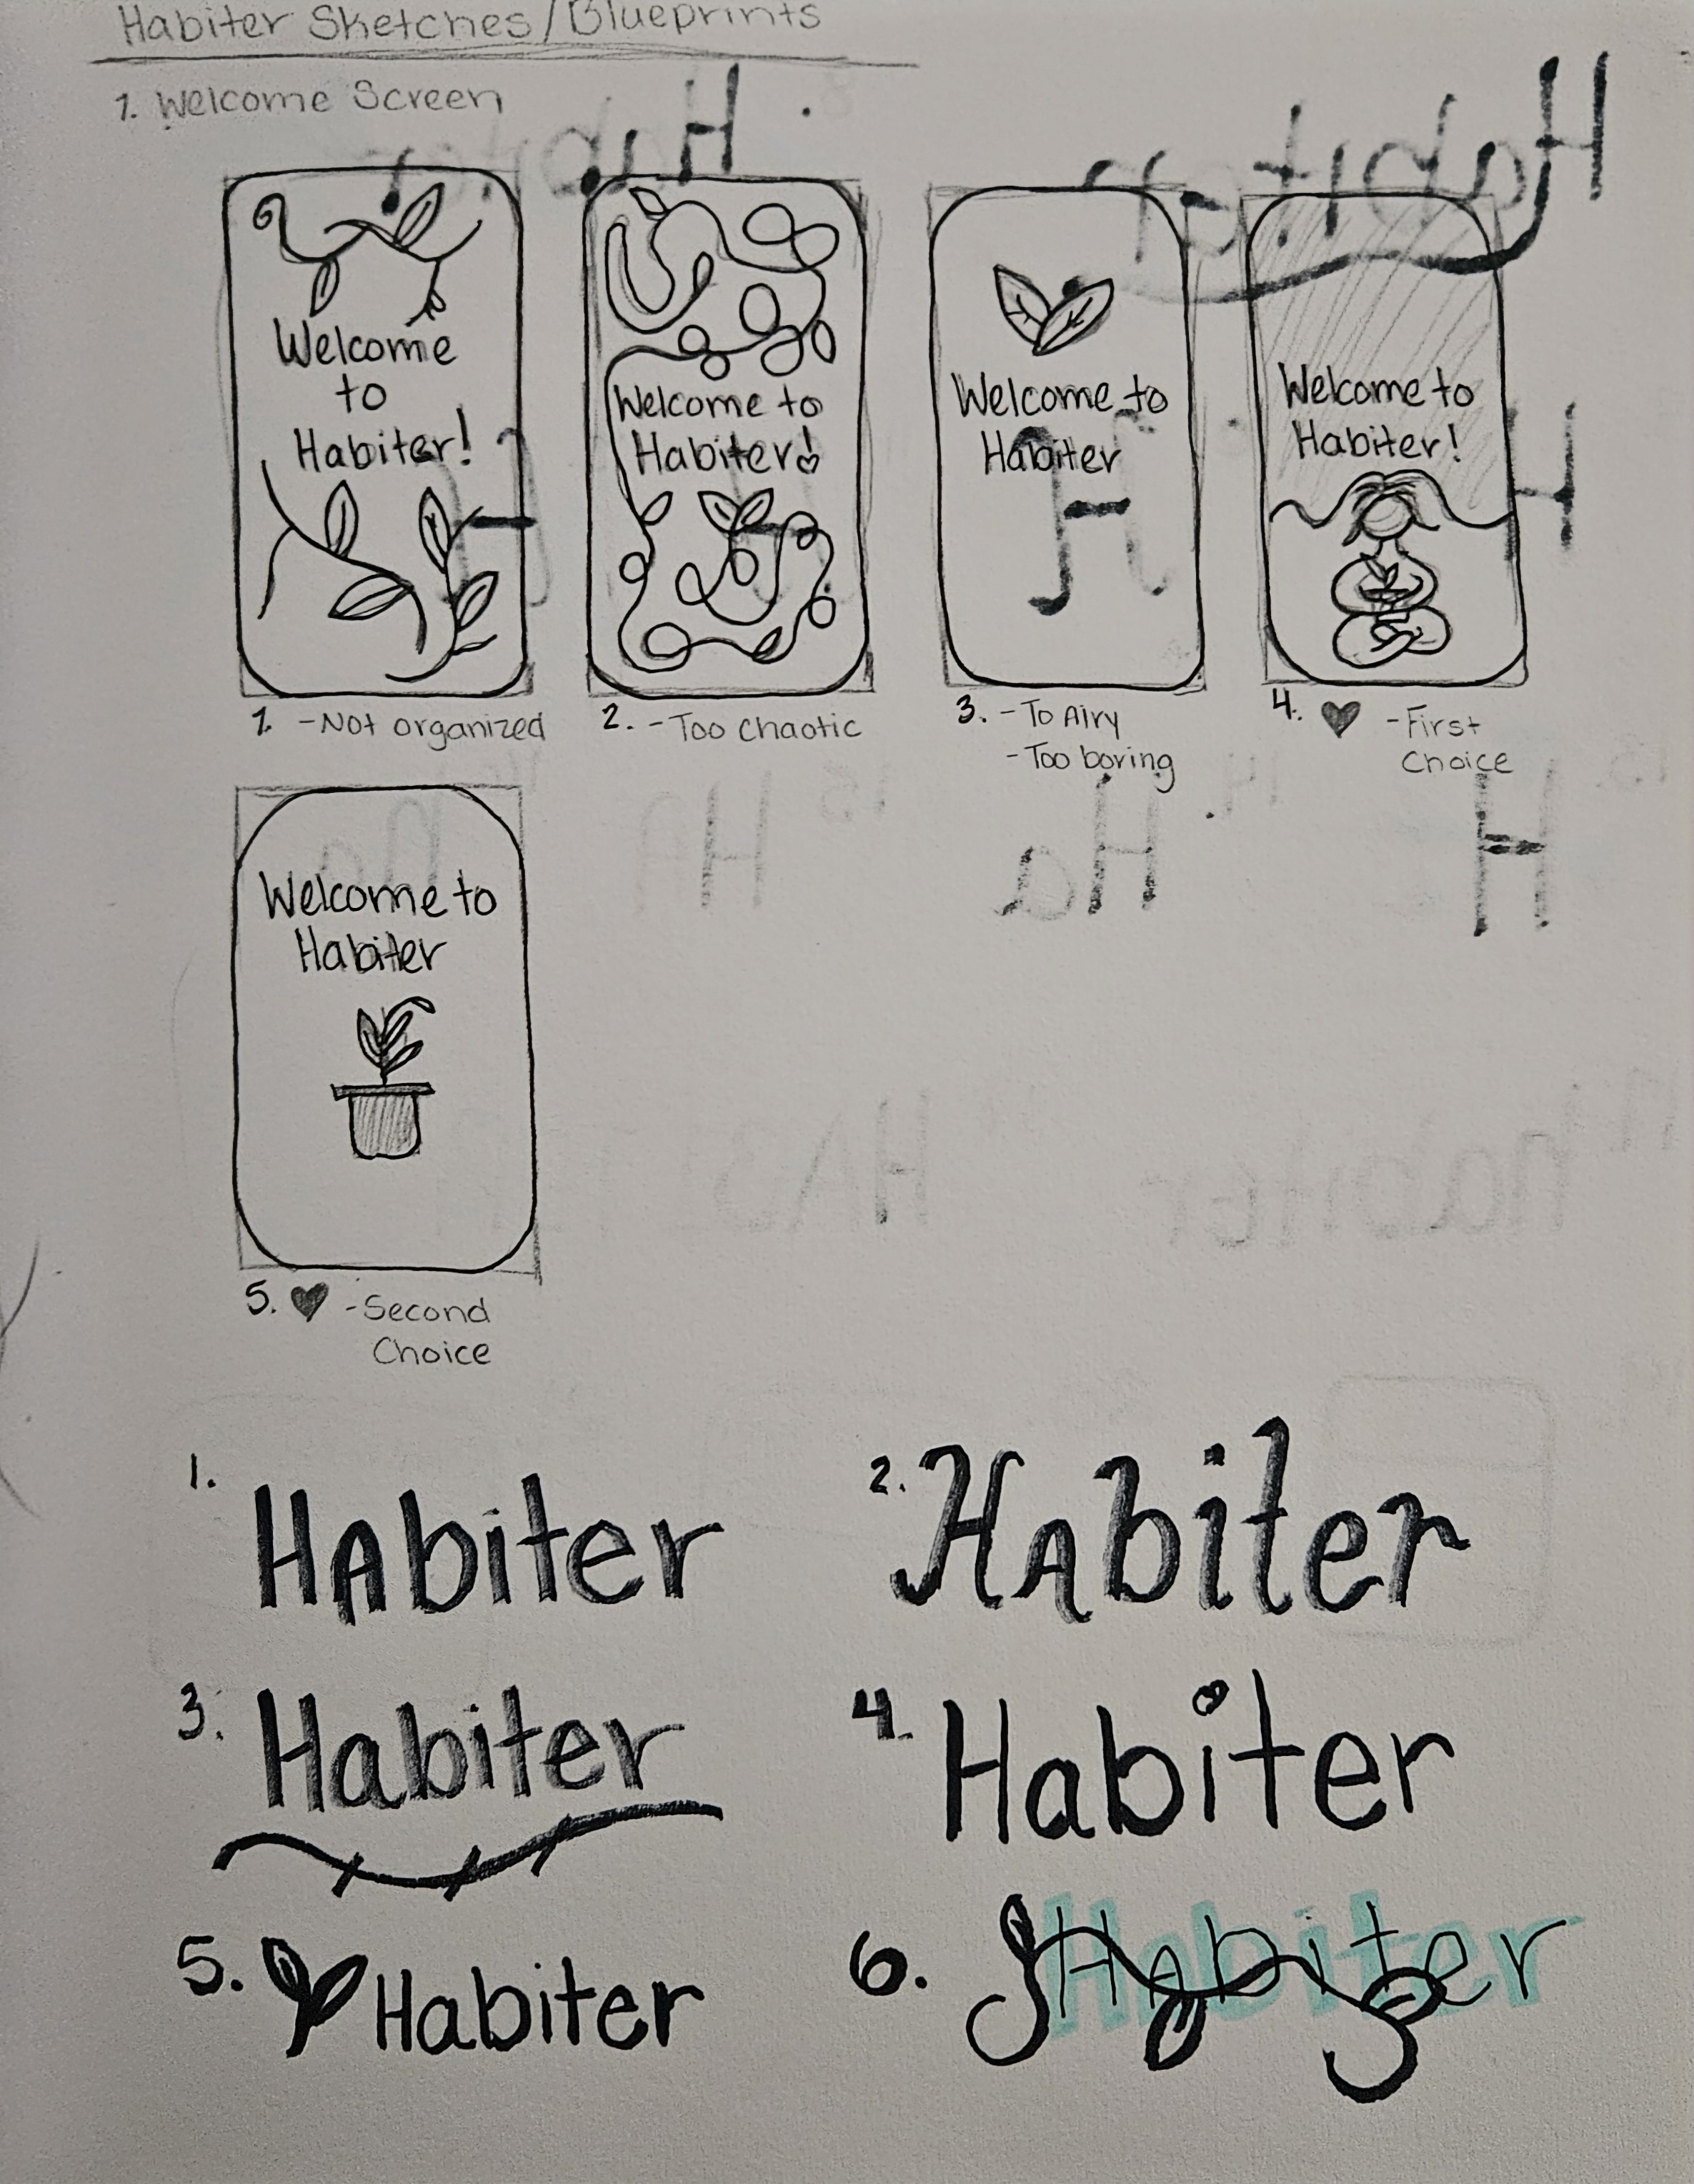 Habiter Sketches/Blueprints
1. Welcome Screen
Welcome
to
Habiter!
1. -Not organized
Welcome to
Habiter!
2. -Too Chaotic
Welcome to
Habiter
3. -To Airy
-Too boring
Welcome to
Habiter!
4. ♥ -First
Choice
Welcome to
Habiter
5. ♥ -Second
Choice
1. HAbiter
2. HAbiter
3. Habiter
4. Habiter
5. Habiter
6. HAbiter